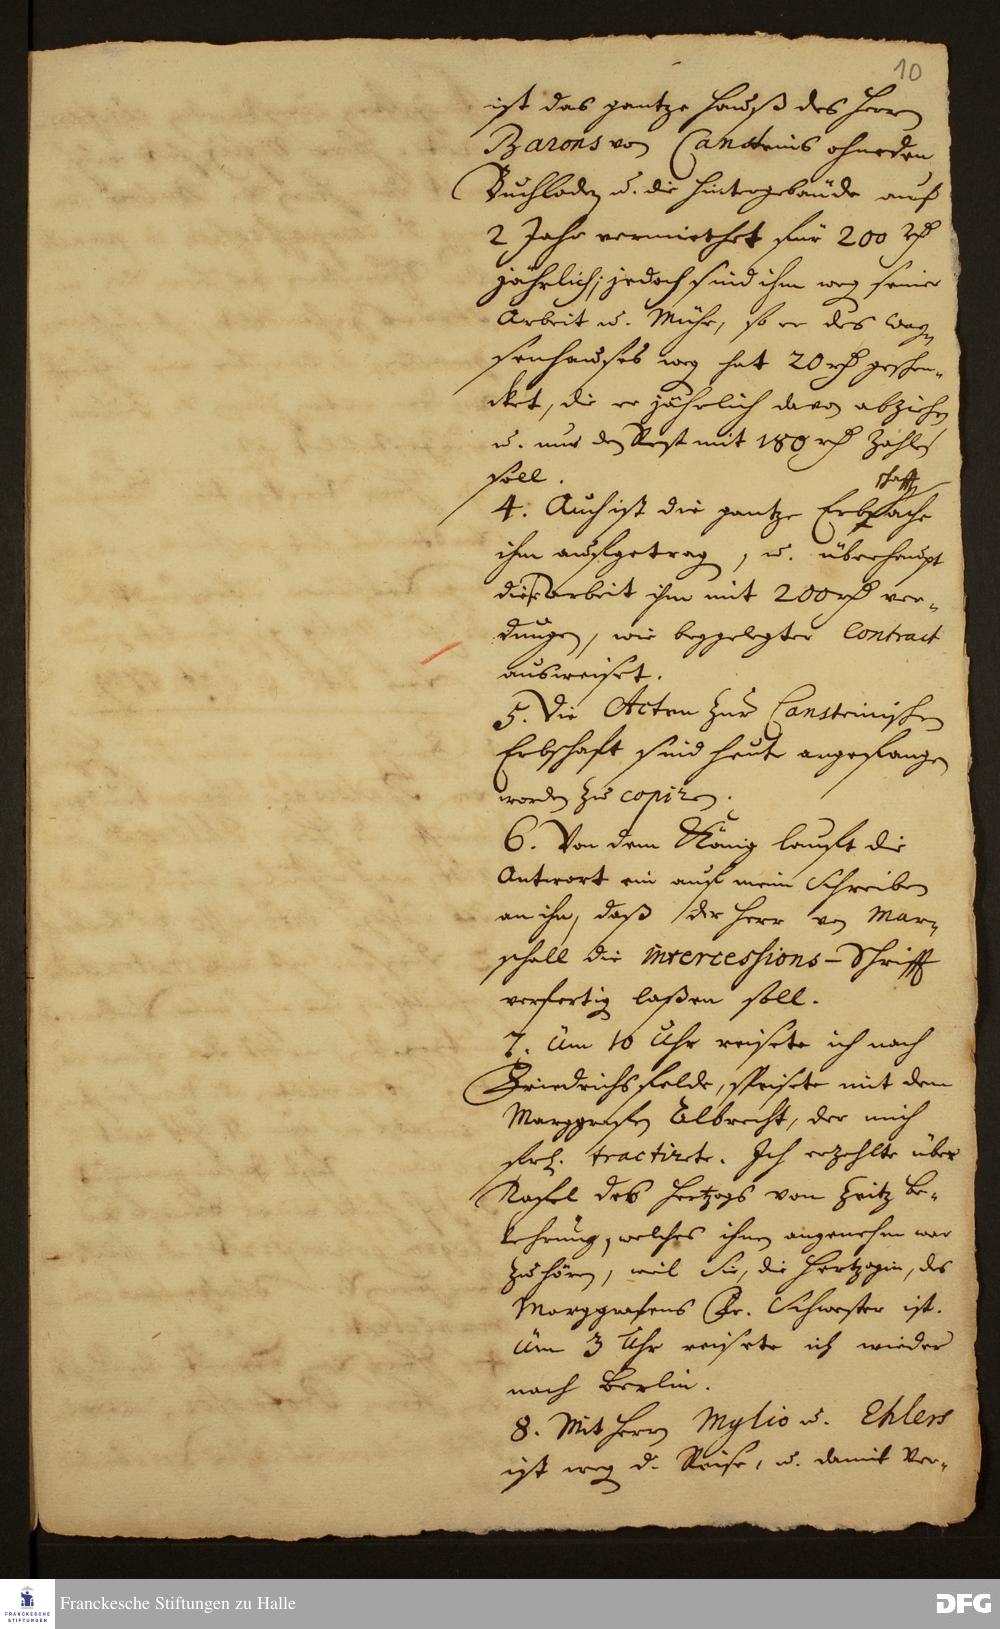 10
ist das gantze Hauß des Herrn
Barons von Cansteins ohne den
Buchladen u. die Hintergebäude auf
2 Jahr vermiethet für 200 rth
jährlich; jedoch sind ihm weg seiner
Arbeit u. Mühe, so er des Way-
senhauses weg hat 20 rth geschen-
cket, die er jährlich davon abziehen
u. nur den Rest mit 180 rth zahlen
soll.
schafft
4. Auch ist die gantze Erbsache
ihm aufgetragen, u. überhaupt
diese arbeit ihm mit 200 rth ver-
dungen, wie beygelegter Contract
ausweiset.
5. Die Acten zur Cansteinischen
Erbschaft sind heute angefangen
worden zu copiren.
6. Von dem König lauft die
Antwort ein auf mein Schreiben
an ihn, daß der Herr von Mar-
schall die intercessions-Schrifft
verfertigen laßen soll.
7. Um 10 Uhr reisete ich nach
Friedrichsfelde, speisete mit dem
Marggrafen Albrecht, der mich
tractirete. Ich erzehlte über
Tafel des Hertzogs von Zeitz Be-
kehrung, welches ihnen angenehm war
zu hören, weil sie, die Hertzogin, des
Marggrafens Fr. Schwester ist.
Um 3 Uhr reisete ich wieder
nach Berlin.
8. Mit Herrn Mylio u. Ehlers
ist weg d. Reise, u. damit ver-
FRANCKESCHE
STIFTUNGEN
Franckesche Stiftungen zu Halle
DFG